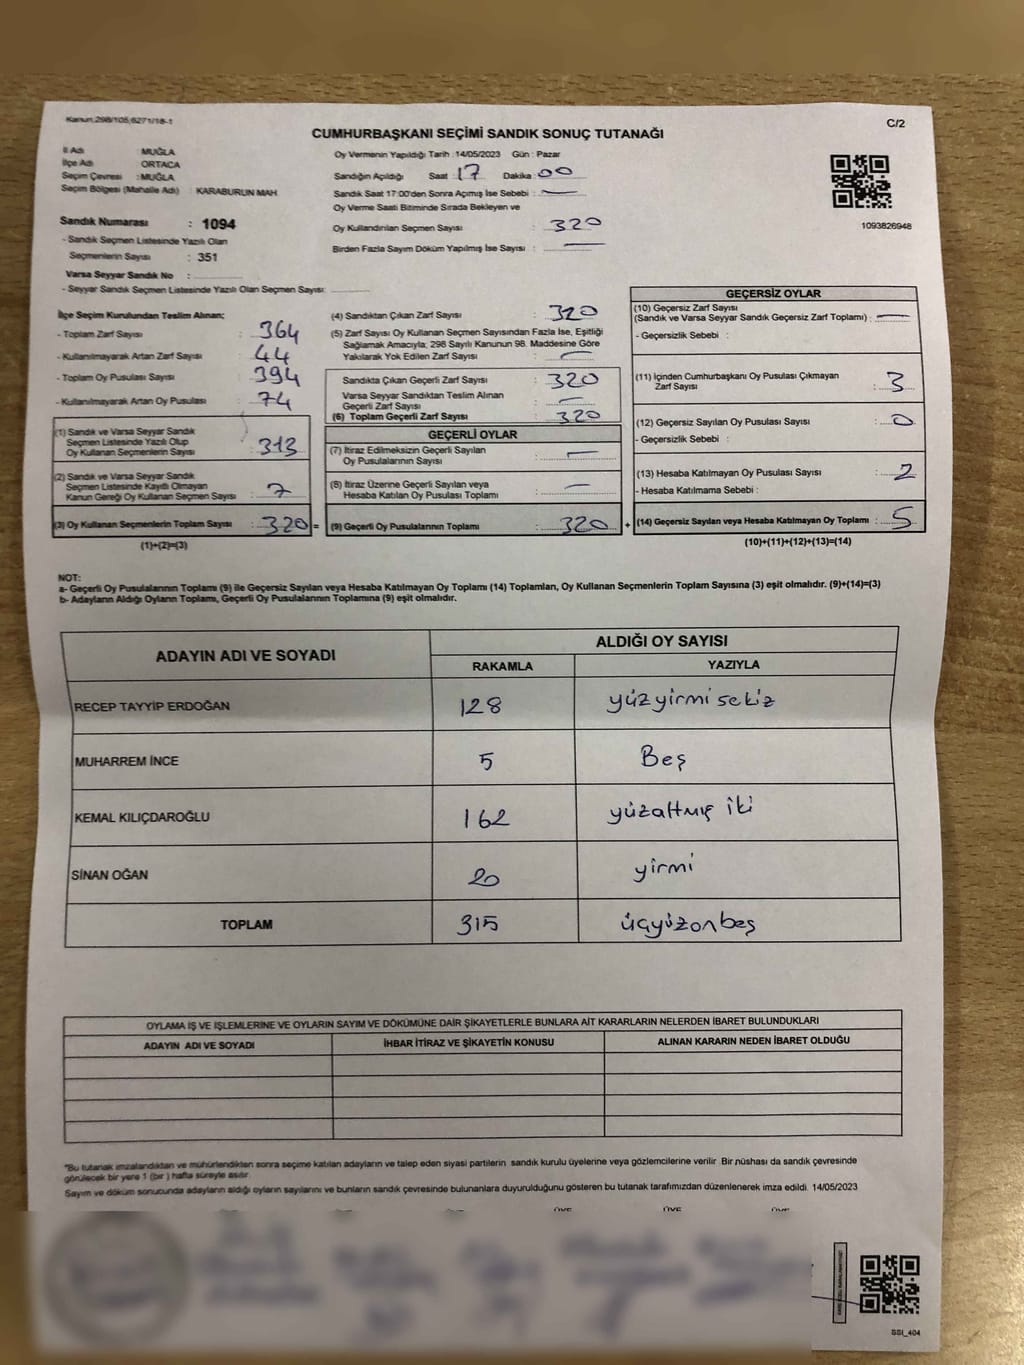 Kanun:298/105,6271/18-1
C/2
CUMHURBAŞKANI SEÇİMİ SANDIK SONUÇ TUTANAĞI
İl Adı : MUĞLA
İlçe Adı : ORTACA
Seçim Çevresi : MUĞLA
Seçim Bölgesi (Mahalle Adı) : KARABURUN MAH
Sandık Numarası : 1094
- Sandık Seçmen Listesinde Yazılı Olan
Seçmenlerin Sayısı : 351
Varsa Seyyar Sandık No :
- Seyyar Sandık Seçmen Listesinde Yazılı Olan Seçmen Sayısı:
Oy Vermenin Yapıldığı Tarih :14/05/2023 Gün : Pazar
Sandığın Açıldığı Saat : 17 Dakika : 00
Sandık Saat 17:00'den Sonra Açmış İse Sebebi : —
Oy Verme Saati Bitiminde Sırada Bekleyen ve
Oy Kullandırılan Seçmen Sayısı : 320
Birden Fazla Sayım Döküm Yapılmış İse Sayısı : —
1093826948
İlçe Seçim Kurulundan Teslim Alınan;
- Toplam Zarf Sayısı : 364
- Kullanılmayarak Artan Zarf Sayısı : 44
- Toplam Oy Pusulası Sayısı : 394
- Kullanılmayarak Artan Oy Pusulası : 74
(1) Sandık ve Varsa Seyyar Sandık
Seçmen Listesinde Yazılı Olup
Oy Kullanan Seçmenlerin Sayısı : 313
(2) Sandık ve Varsa Seyyar Sandık
Seçmen Listesinde Kayıtlı Olmayan
Kanun Gereği Oy Kullanan Seçmen Sayısı : 7
(3) Oy Kullanan Seçmenlerin Toplam Sayısı : 320 =
(1)+(2)=(3)
(4) Sandıktan Çıkan Zarf Sayısı : 320
(5) Zarf Sayısı Oy Kullanan Seçmen Sayısından Fazla İse, Eşitliği
Sağlamak Amacıyla; 298 Sayılı Kanunun 98. Maddesine Göre
Yakılarak Yok Edilen Zarf Sayısı : —
Sandıkta Çıkan Geçerli Zarf Sayısı : 320
Varsa Seyyar Sandıktan Teslim Alınan
Geçerli Zarf Sayısı : —
(6) Toplam Geçerli Zarf Sayısı : 320
GEÇERLİ OYLAR
(7) İtiraz Edilmeksizin Geçerli Sayılan
Oy Pusulalarının Sayısı : —
(8) İtiraz Üzerine Geçerli Sayılan veya
Hesaba Katılan Oy Pusulası Toplamı : —
(9) Geçerli Oy Pusulalarının Toplamı : 320 +
GEÇERSİZ OYLAR
(10) Geçersiz Zarf Sayısı
(Sandık ve Varsa Seyyar Sandık Geçersiz Zarf Toplamı) : —
- Geçersizlik Sebebi :
(11) İçinden Cumhurbaşkanı Oy Pusulası Çıkmayan
Zarf Sayısı : 3
(12) Geçersiz Sayılan Oy Pusulası Sayısı : 0
- Geçersizlik Sebebi :
(13) Hesaba Katılmayan Oy Pusulası Sayısı : 2
- Hesaba Katılmama Sebebi :
(14) Geçersiz Sayılan veya Hesaba Katılmayan Oy Toplamı : 5
(10)+(11)+(12)+(13)=(14)
NOT:
a- Geçerli Oy Pusulalarının Toplamı (9) ile Geçersiz Sayılan veya Hesaba Katılmayan Oy Toplamı (14) Toplamları, Oy Kullanan Seçmenlerin Toplam Sayısına (3) eşit olmalıdır. (9)+(14)=(3)
b- Adayların Aldığı Oyların Toplamı, Geçerli Oy Pusulalarının Toplamına (9) eşit olmalıdır.
ADAYIN ADI VE SOYADI ALDIĞI OY SAYISI
RAKAMLA YAZIYLA
RECEP TAYYİP ERDOĞAN 128 yüzyirmi sekiz
MUHARREM İNCE 5 Beş
KEMAL KILIÇDAROĞLU 162 yüzaltmış iki
SİNAN OĞAN 20 yirmi
TOPLAM 315 üçyüzonbeş
OYLAMA İŞ VE İŞLEMLERİNE VE OYLARIN SAYIM VE DÖKÜMÜNE DAİR ŞİKAYETLERLE BUNLARA AİT KARARLARIN NELERDEN İBARET BULUNDUKLARI
ADAYIN ADI VE SOYADI İHBAR İTİRAZ VE ŞİKAYETİN KONUSU ALINAN KARARIN NEDEN İBARET OLDUĞU
*Bu tutanak imzalandıktan ve mühürlendikten sonra seçime katılan adayların ve talep eden siyasi partilerin sandık kurulu üyelerine veya gözlemcilerine verilir .Bir nüshası da sandık çevresinde
görülecek bir yere 1 (bir ) hafta süreyle asılır.
Sayım ve döküm sonucunda adayların aldığı oyların sayılarını ve bunların sandık çevresinde bulunanlara duyurulduğunu gösteren bu tutanak tarafımızdan düzenlenerek imza edildi. 14/05/2023
ÜYE ÜYE ÜYE
SSİ_404